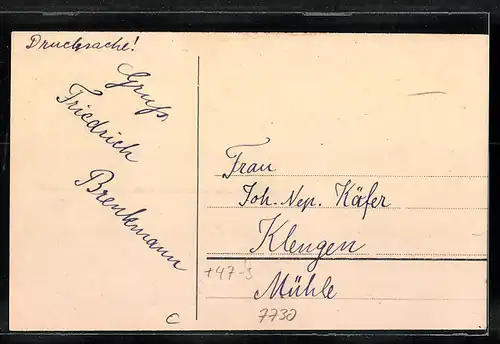 Drucksache!
Gruss,
Friedrich
Brenkmann
Frau
Joh. Nep. Käfer
Klengen
+47-3
Mühle
7730
C